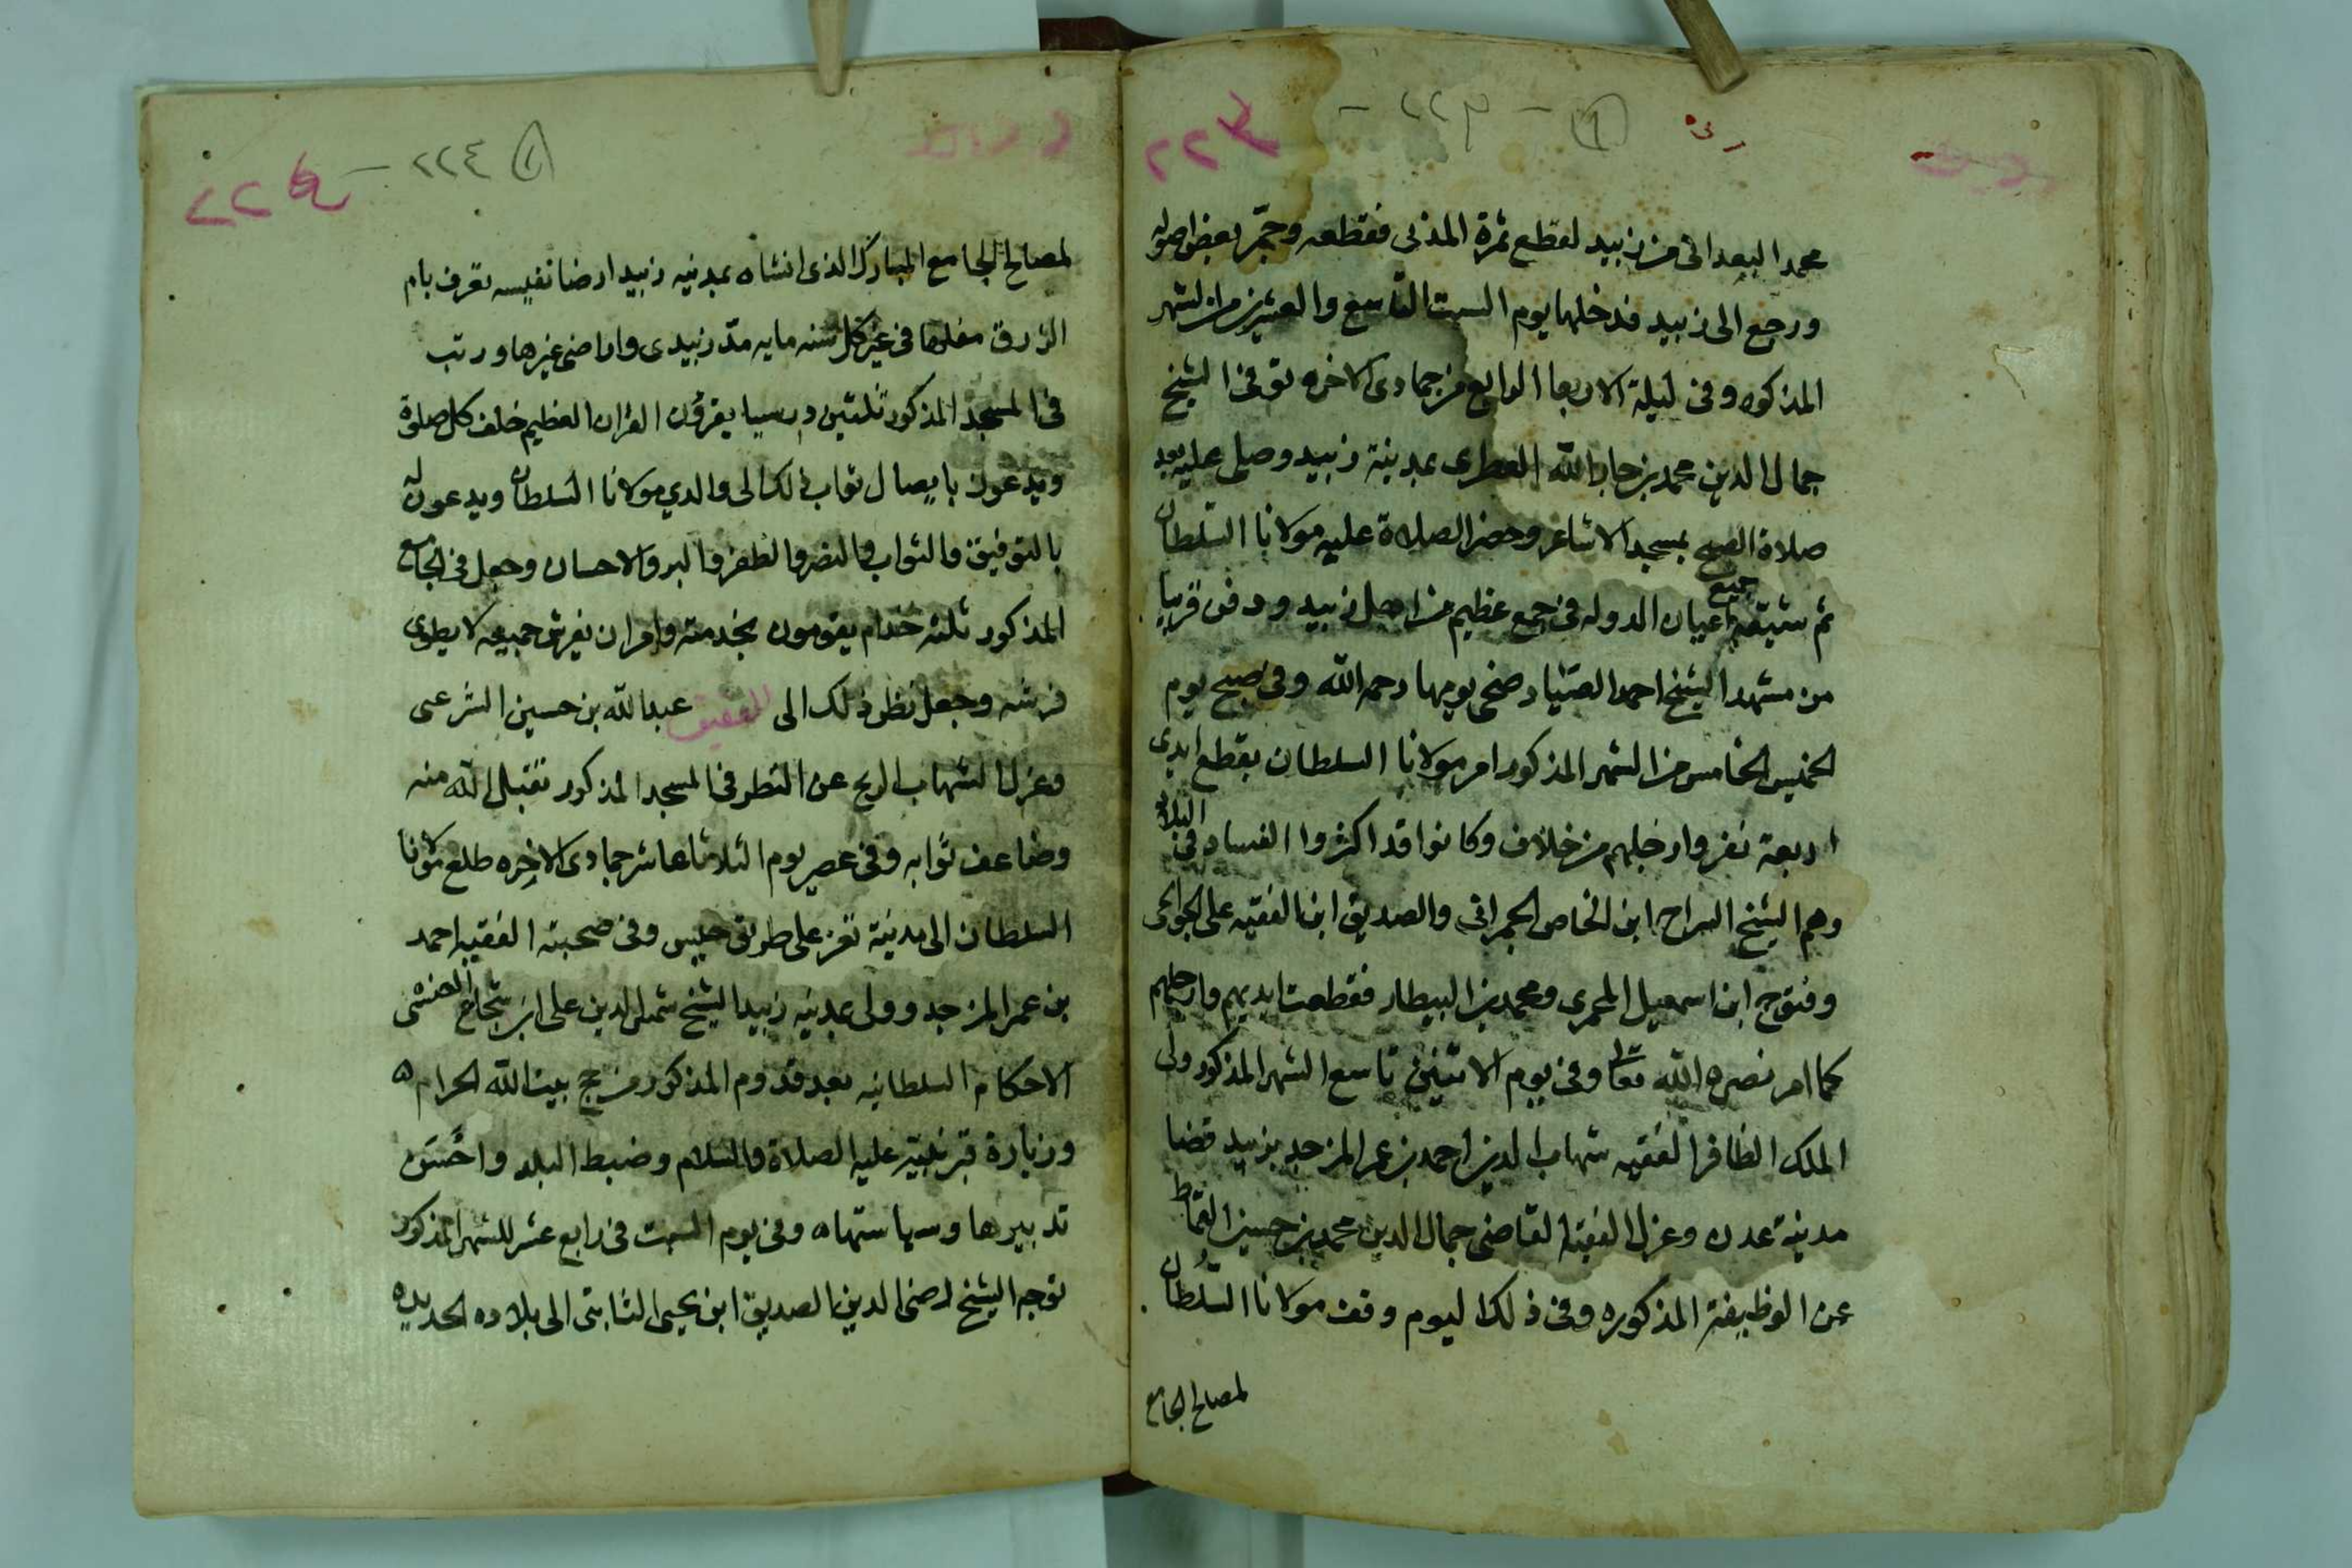 محمد البعدانى من زبيد لقطع ثمرة المدبى فقطعه وجمّر بعض اصوله
ورجع الى زبيد فدخلها يوم السبت التاسع والعشرين من الشهر
المذكور وفى ليلة الاربعا الرابع من جمادى الاخره توفى الشيخ
جمال الدين محمد بن جار الله العطرى بمدينة زبيد وصلى عليه بعد
صلاة الصبح بمسجد الاشاعر وحضر الصلاة عليه مولانا السلطان
ثم شيّعه جميع اعيان الدوله فى جمع عظيم من اهل زبيد ودفن قريبا
من مشهد الشيخ احمد الصياد ضحى يومها رحمه الله وفى صبح يوم
الخميس الخامس من الشهر المذكور امر مولانا السلطان بقطع ايدى
اربعة نفر وارجلهم من خلاف وكانوا قد اكثروا الفساد فى البلاد
وهم الشيخ السراح ابن الخاص الجبراقى والصديق ابن الفقيه على
وفتوح ابن اسمعيل المجرى ومحمد بن البيطار فقطعت ايديهم وارجلهم
كما امر نصره الله تعالى وفى يوم الاثنين تاسع الشهر المذكور ولى
الملك الظافر الفقيه شهاب الدين احمد بن عمر المزجد بزبيد قضا
مدينة عدن وعزل الفقيه القاضى جمال الدين محمد بن حسين القماط
عن الوظيفة المذكوره وفى ذلك اليوم وقف مولانا السلطان
لمصالح الجامع
٢٢٤
لمصالح الجامع المبارك الذى انشاه بمدنيه زبيد ارضا نفيسه تعرف بام
الزرق مغلها فى غير كل سنه مايه مدّ زبيدى واراضى غيرها ورتب
فى المسجد المذكور ثلثين درسيا يقرؤن القران العظيم خلف كل صلوة
ويدعون بايصال ثواب ذلك الى والدي مولانا السلطان ويدعون له
بالتوفيق والثواب والنصر والظفر والبر والاحسان وجعل فى الجامع
المذكور ثلثه خدام يقومون بخدمته وامر ان يفرش جميعه لا يطوى
فرشه وجعل نظر ذلك الى الفقيه عبد الله بن حسين الشرعى
وعزل الشهاب الريح عن النظر فى المسجد المذكور تقبل الله منه
وضاعف ثوابه وفى عصر يوم الثلاثا عاشر جمادى الاخره طلع مولانا
السلطان الى مدينة تعز على طريق حيس وفى صحبته الفقيه احمد
بن عمر المزجد وولى بمدنيه زبيد الشيخ شمس الدين على ابن شجاع العنسى
الاحكام السلطانيه بعد قدوم المذكور من حج بيت الله الحرام ه
وزيارة قبر نبيه عليه الصلاة والسلام وضبط البلد واحسن
تدبيرها وسياستهاه وفى يوم السبت فى رابع عشر للشهر المذكور
توجه الشيخ رضى الدين الصديق ابن يحيى الثابتى الى بلاده الحديده